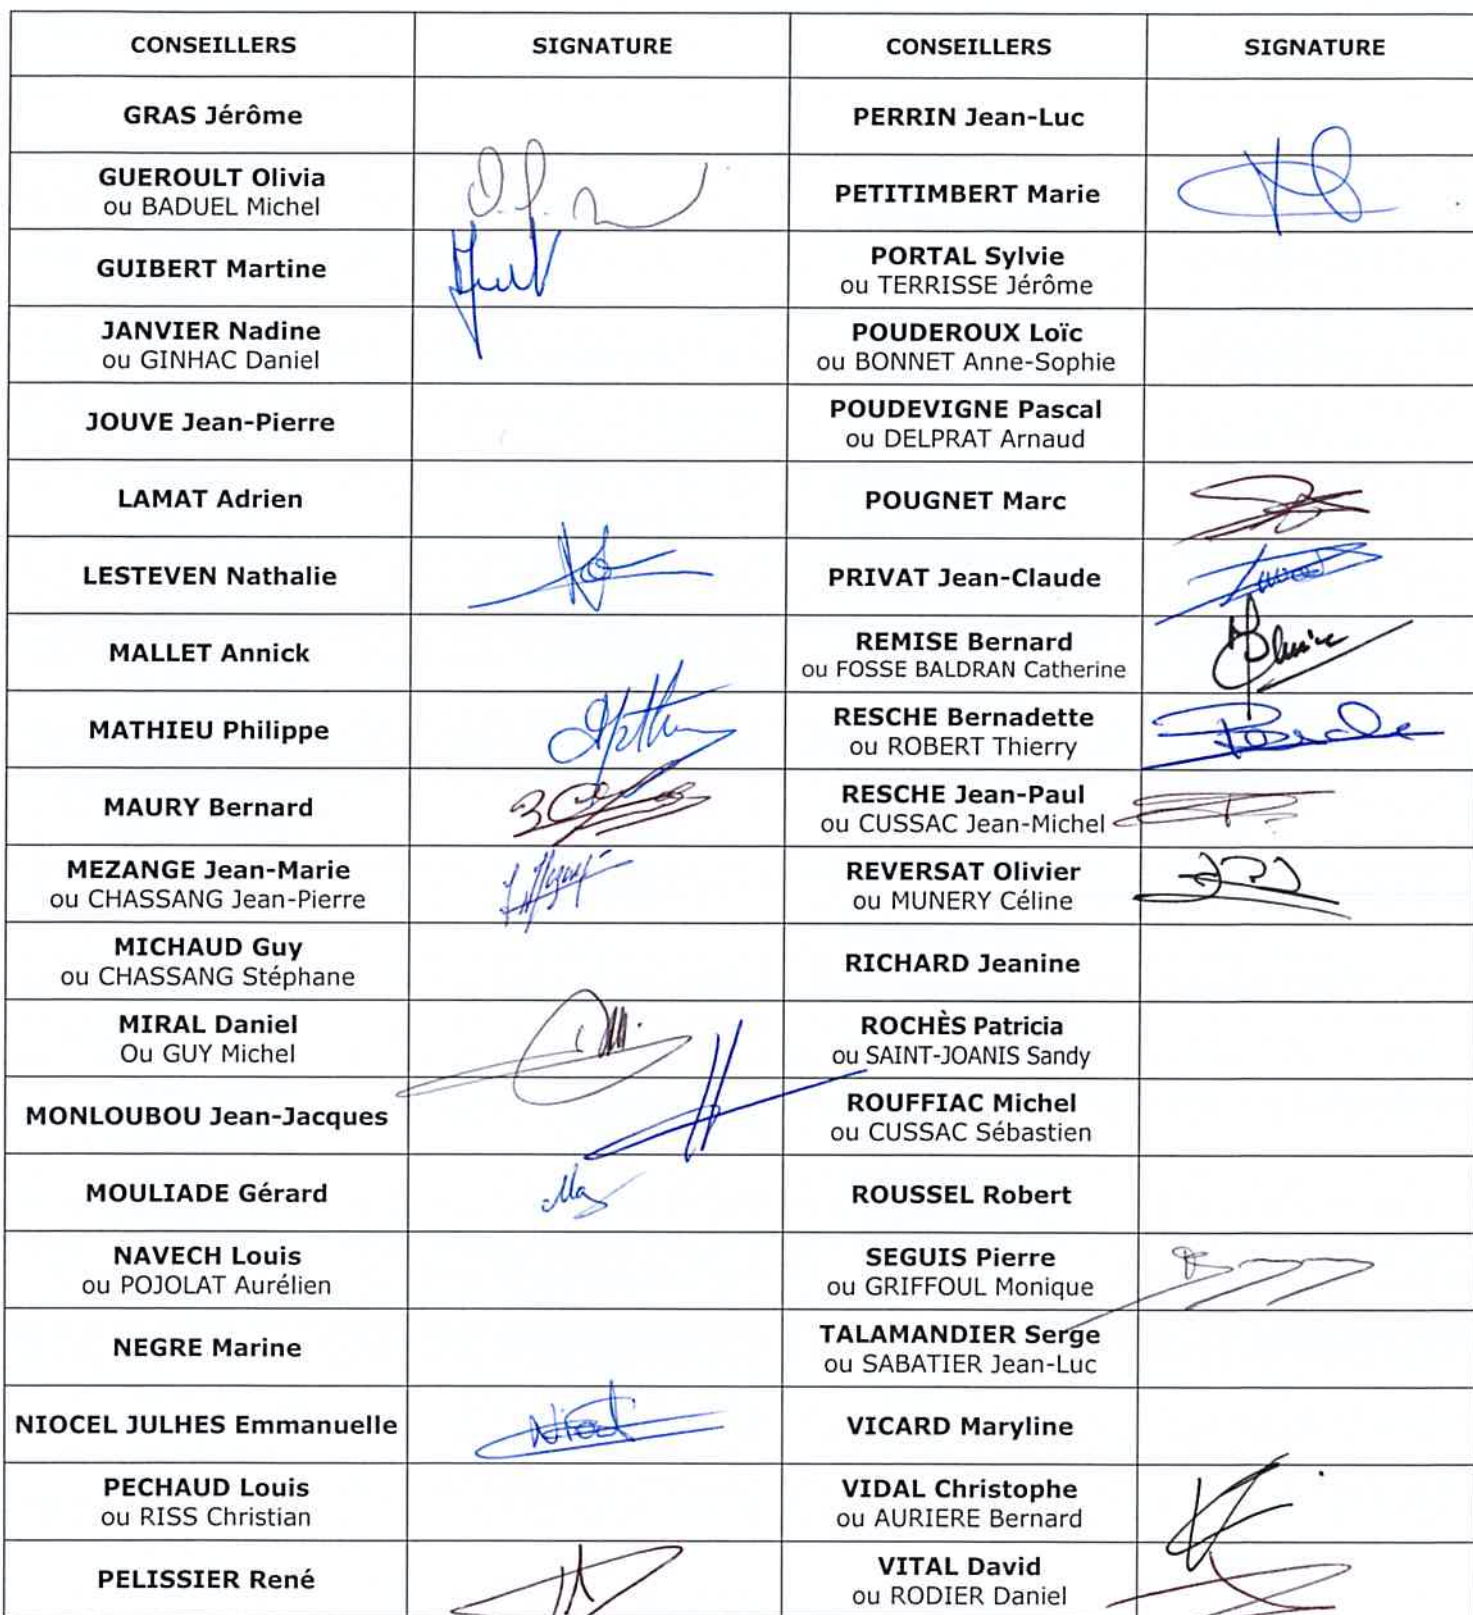 CONSEILLERS SIGNATURE CONSEILLERS SIGNATURE
GRAS Jérôme PERRIN Jean-Luc
GUEROULT Olivia
ou BADUEL Michel
PETITIMBERT Marie
GUIBERT Martine
PORTAL Sylvie
ou TERRISSE Jérôme
JANVIER Nadine
ou GINHAC Daniel
POUDEROUX Loïc
ou BONNET Anne-Sophie
JOUVE Jean-Pierre
POUDEVIGNE Pascal
ou DELPRAT Arnaud
LAMAT Adrien POUGNET Marc
LESTEVEN Nathalie PRIVAT Jean-Claude
MALLET Annick
REMISE Bernard
ou FOSSE BALDRAN Catherine
MATHIEU Philippe
RESCHE Bernadette
ou ROBERT Thierry
MAURY Bernard
RESCHE Jean-Paul
ou CUSSAC Jean-Michel
MEZANGE Jean-Marie
ou CHASSANG Jean-Pierre
REVERSAT Olivier
ou MUNERY Céline
MICHAUD Guy
ou CHASSANG Stéphane
RICHARD Jeanine
MIRAL Daniel
Ou GUY Michel
ROCHÈS Patricia
ou SAINT-JOANIS Sandy
MONLOUBOU Jean-Jacques
ROUFFIAC Michel
ou CUSSAC Sébastien
MOULIADE Gérard ROUSSEL Robert
NAVECH Louis
ou POJOLAT Aurélien
SEGUIS Pierre
ou GRIFFOUL Monique
NEGRE Marine
TALAMANDIER Serge
ou SABATIER Jean-Luc
NIOCEL JULHES Emmanuelle VICARD Maryline
PECHAUD Louis
ou RISS Christian
VIDAL Christophe
ou AURIERE Bernard
PELISSIER René
VITAL David
ou RODIER Daniel